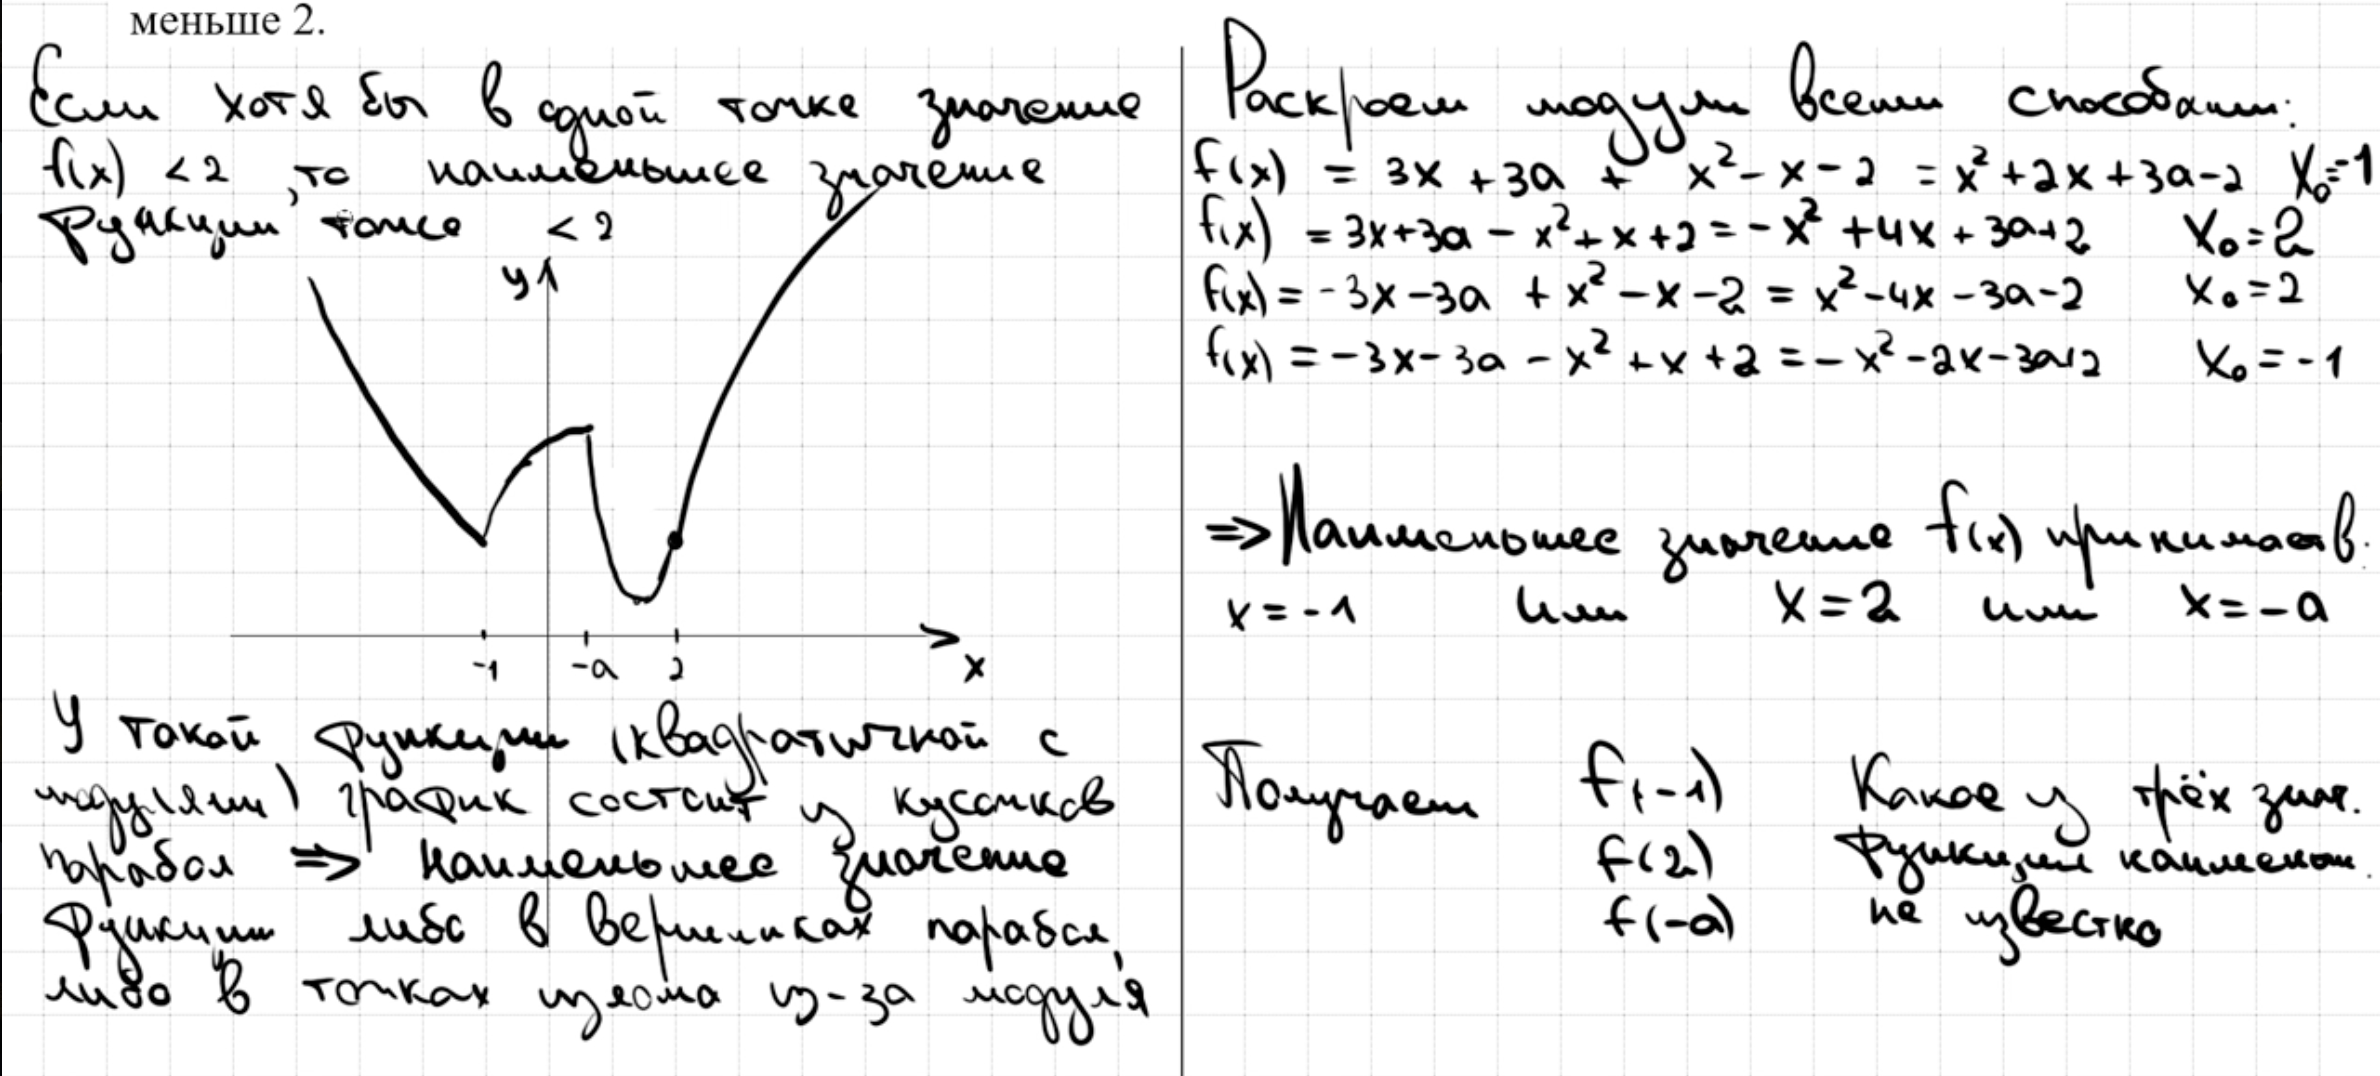 меньше 2.
Если хотя бы в одной точке значение
f(x) < 2, то наименьшее значение
функции тоже < 2
y
-1 -a 2 x
У такой функции (квадратичной с
модулями) график состоит из кусочков
парабол => наименьшее значение
функции либо в вершинах парабол,
либо в точках излома из-за модуля
Раскроем модули всеми способами:
f(x) = 3x + 3a + x² - x - 2 = x² + 2x + 3a - 2 x₀ = -1
f(x) = 3x + 3a - x² + x + 2 = -x² + 4x + 3a + 2 x₀ = 2
f(x) = -3x - 3a + x² - x - 2 = x² - 4x - 3a - 2 x₀ = 2
f(x) = -3x - 3a - x² + x + 2 = -x² - 2x - 3a + 2 x₀ = -1
=> Наименьшее значение f(x) принимает в:
x = -1 или x = 2 или x = -a
Получаем f(-1) Какое из трёх знач.
f(2) функции наименьш.
f(-a) не известно